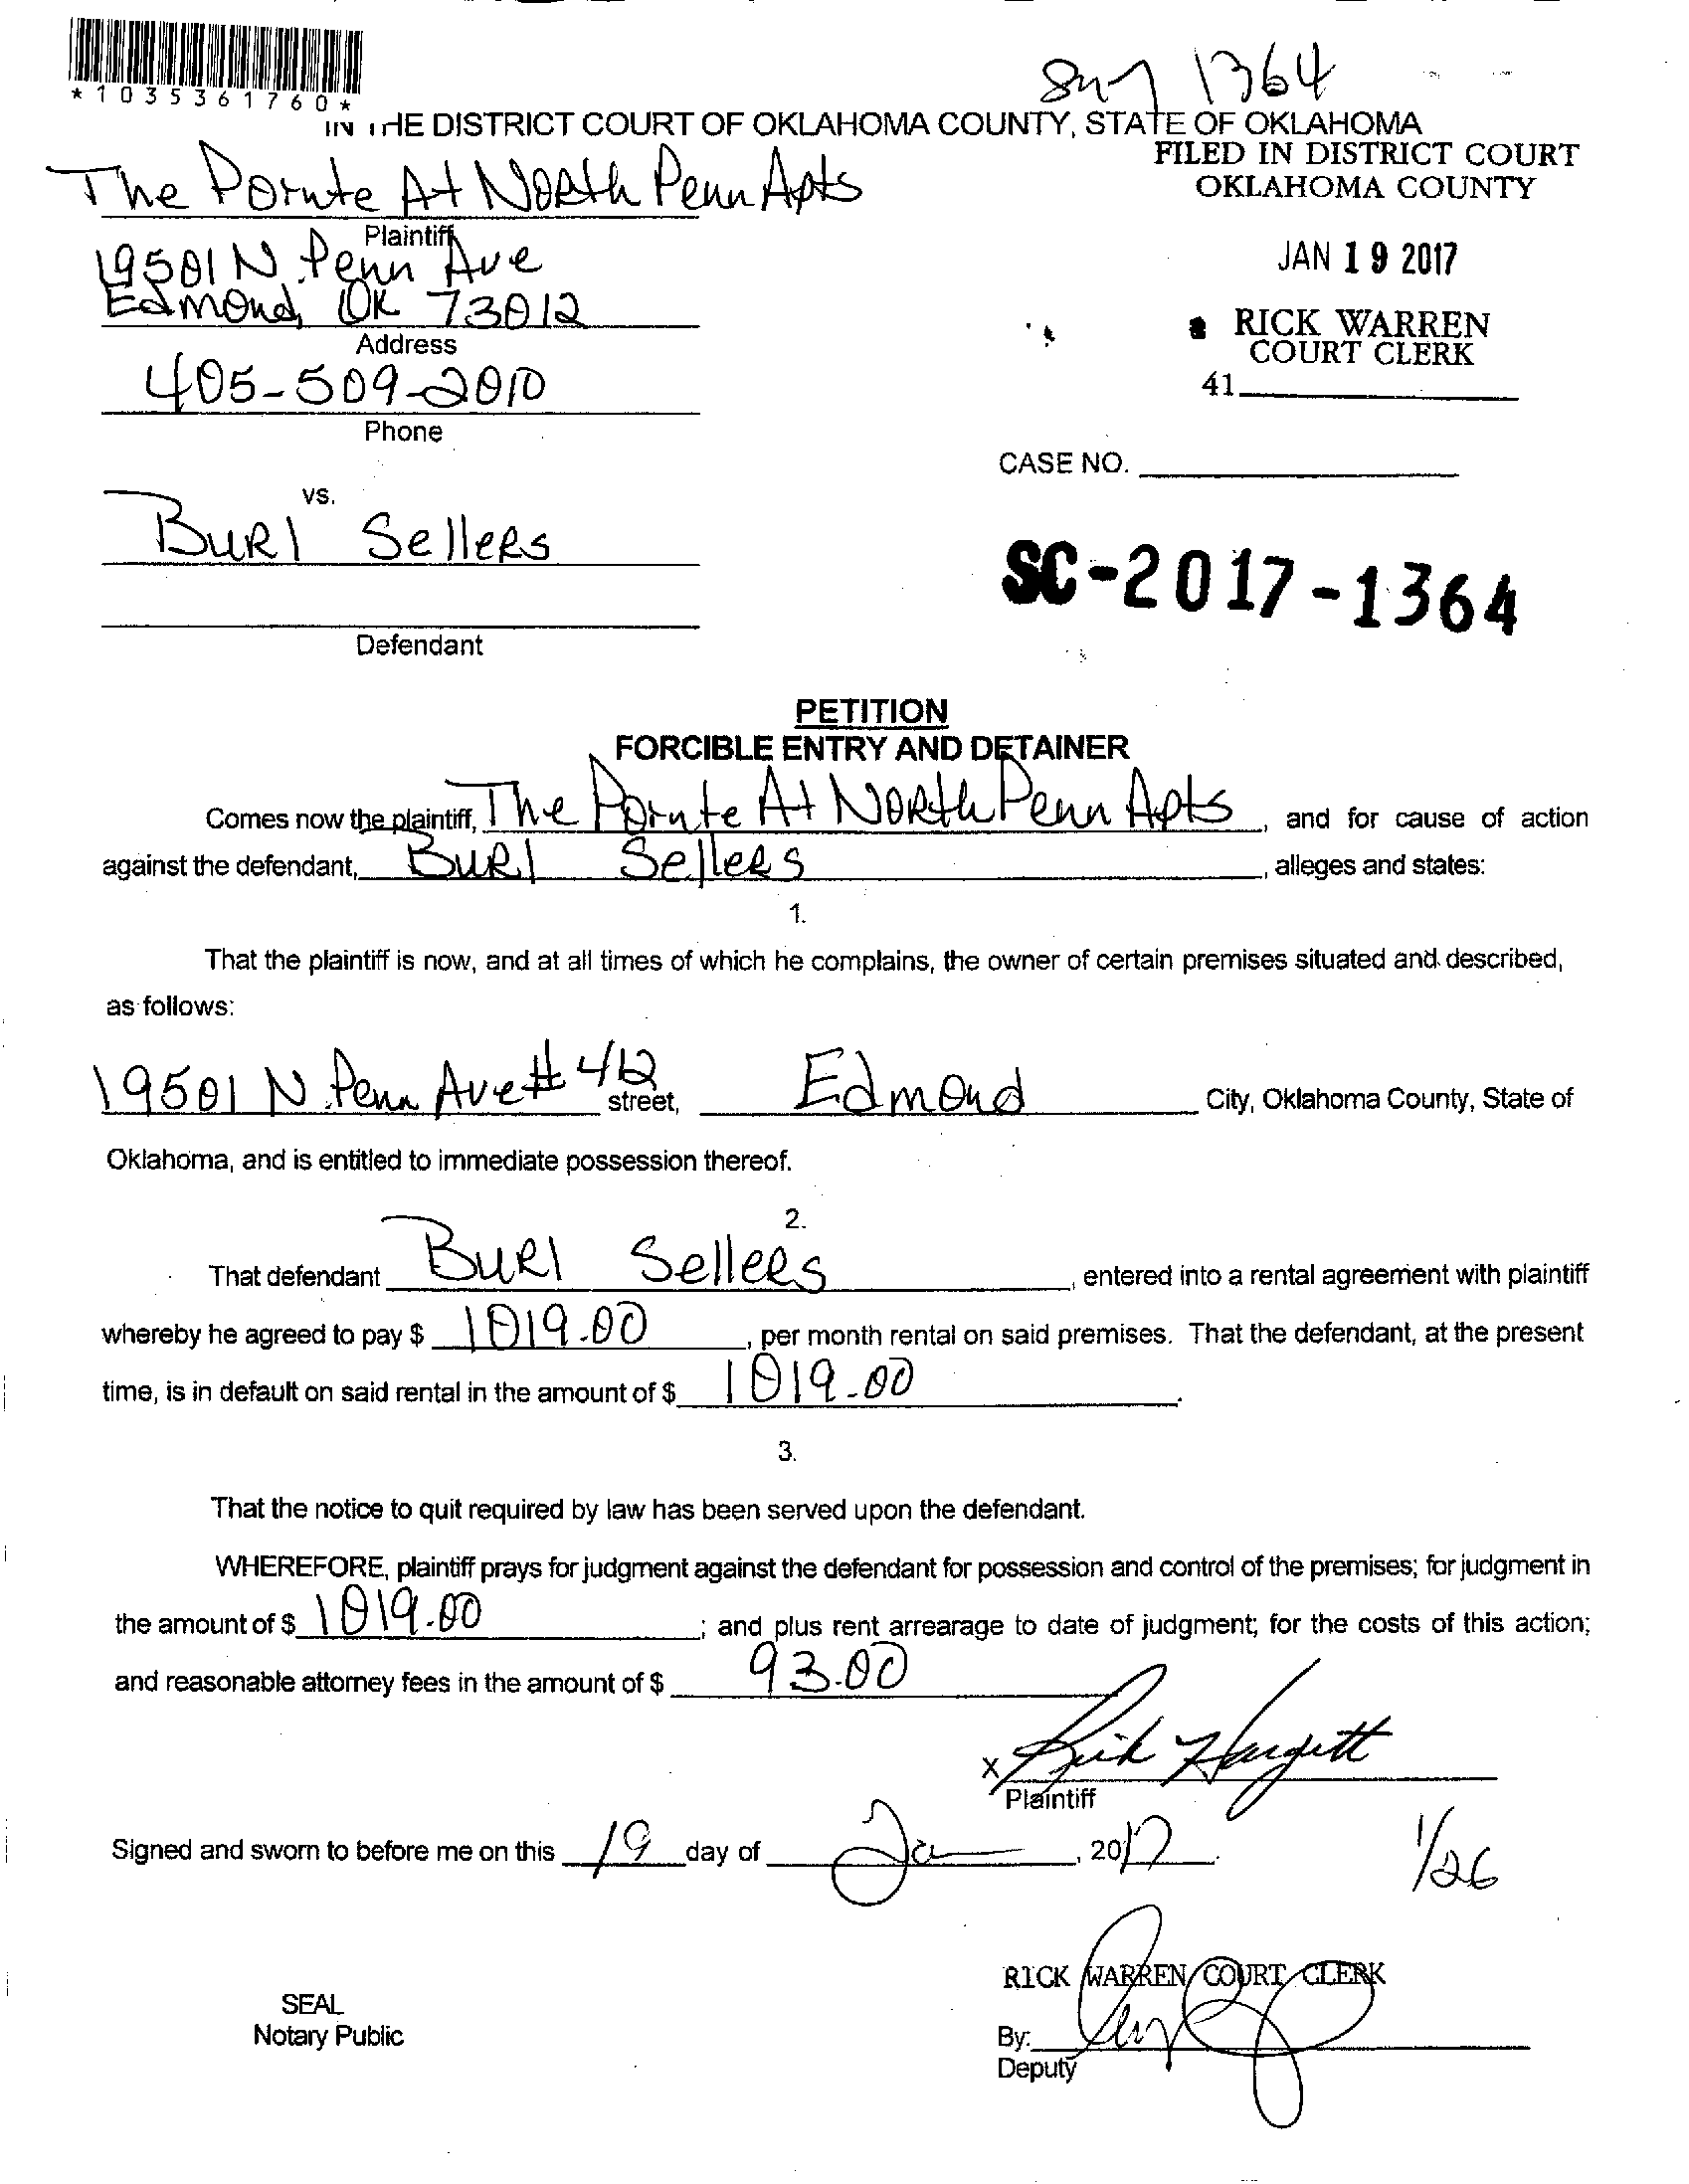 *1035361760*
1364
IN THE DISTRICT COURT OF OKLAHOMA COUNTY, STATE OF OKLAHOMA
FILED IN DISTRICT COURT
OKLAHOMA COUNTY
The Pointe At North Penn Apts
Plaintiff
JAN 19 2017
19501 N. Penn Ave
Edmond, OK 73012
Address
RICK WARREN
COURT CLERK
405-509-2010
41
Phone
CASE NO.
vs.
Burl Sellers
SC-2017-1364
Defendant
PETITION
FORCIBLE ENTRY AND DETAINER
Comes now the plaintiff, The Pointe At North Penn Apts, and for cause of action
against the defendant, Burl Sellers, alleges and states:
1.
That the plaintiff is now, and at all times of which he complains, the owner of certain premises situated and described,
as follows:
19501 N. Penn Ave # 412 street, Edmond City, Oklahoma County, State of
Oklahoma, and is entitled to immediate possession thereof.
2.
That defendant Burl Sellers, entered into a rental agreement with plaintiff
whereby he agreed to pay $ 1019.00, per month rental on said premises. That the defendant, at the present
time, is in default on said rental in the amount of $ 1019.00.
3.
That the notice to quit required by law has been served upon the defendant.
WHEREFORE, plaintiff prays for judgment against the defendant for possession and control of the premises; for judgment in
the amount of $ 1019.00; and plus rent arrearage to date of judgment; for the costs of this action;
and reasonable attorney fees in the amount of $ 93.00
X Rick Hargett
Plaintiff
Signed and sworn to before me on this 19 day of Jan, 2017.
1/26
RICK WARREN COURT CLERK
SEAL
Notary Public
By:
Deputy